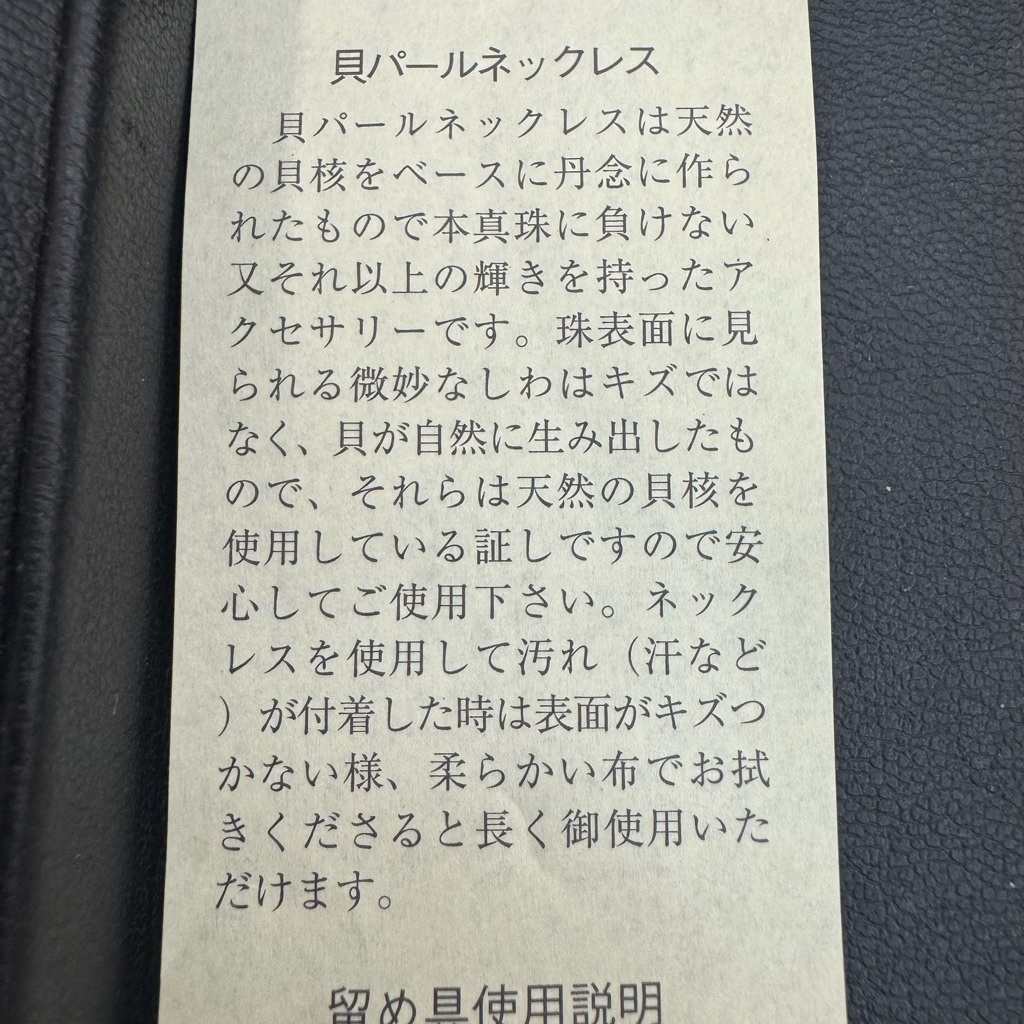 貝パールネックレス
貝パールネックレスは天然
の貝核をベースに丹念に作ら
れたもので本真珠に負けない
又それ以上の輝きを持ったア
クセサリーです。珠表面に見
られる微妙なしわはキズでは
なく、貝が自然に生み出したも
ので、それらは天然の貝核を
使用している証しですので安
心してご使用下さい。ネック
レスを使用して汚れ（汗など
）が付着した時は表面がキズつ
かない様、柔らかい布でお拭
きくださると長く御使用いた
だけます。
留め具使用説明